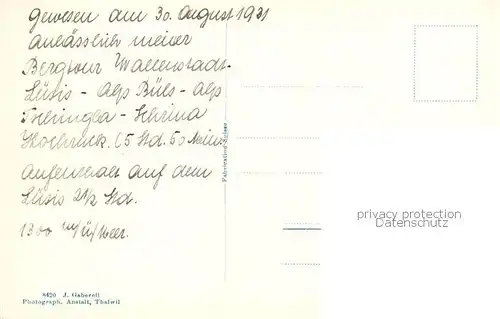 gewesen am 30. August 1931
anlässlich meiner
Bergtour Wallenstadt-
Lüsis - Alp Büls - Alp
Tschingla - Schrina
Hochruck. (5 Std. 50 Min.
Aufenthalt auf dem
Lüsis 2½ Std.
1300 m/ü/Meer.
8420 J. Gaberell
Photograph. Anstalt, Thalwil
privacy protection
Datenschutz